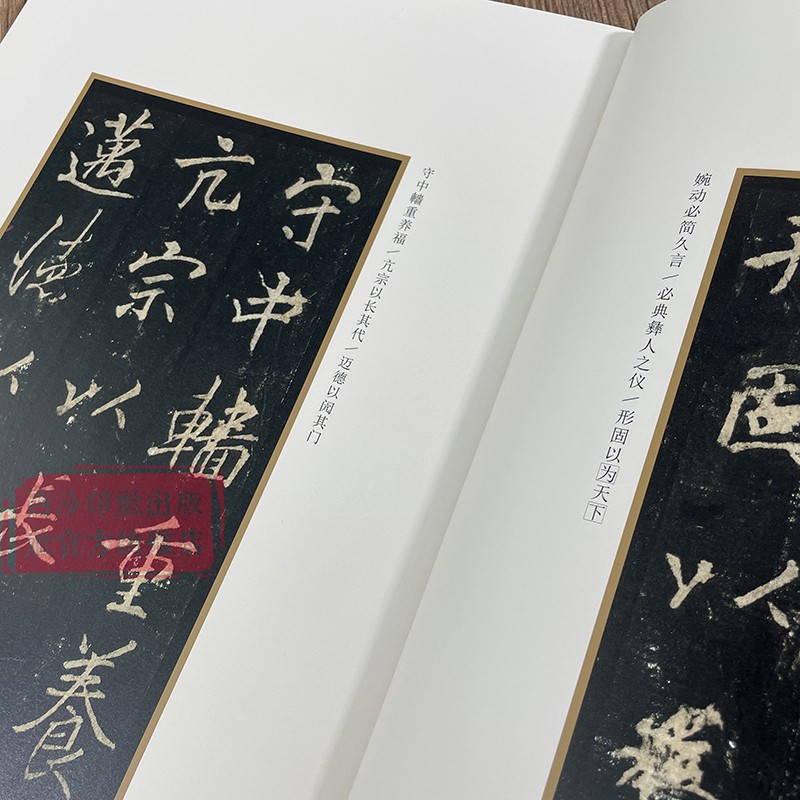 守中轖重養
亢宗以長
邁德
守中轖重养福/亢宗以长其代/迈德以闳其门
婉动必简久言/必典彝人之仪/形固以为天下
固
西泠印社出版
社官方旗舰店